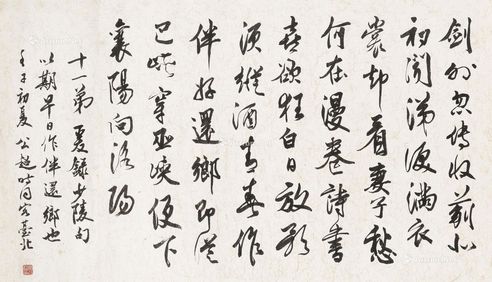 劍外忽傳收薊北
初聞涕淚滿衣
裳却看妻子愁
何在漫卷詩書
喜欲狂白日放歌
須縱酒青春作
伴好還鄉即從
巴峽穿巫峽便下
襄陽向洛陽
十一弟 錄少陵句
以期早日作伴還鄉也
壬子初夏 公超時同客臺北